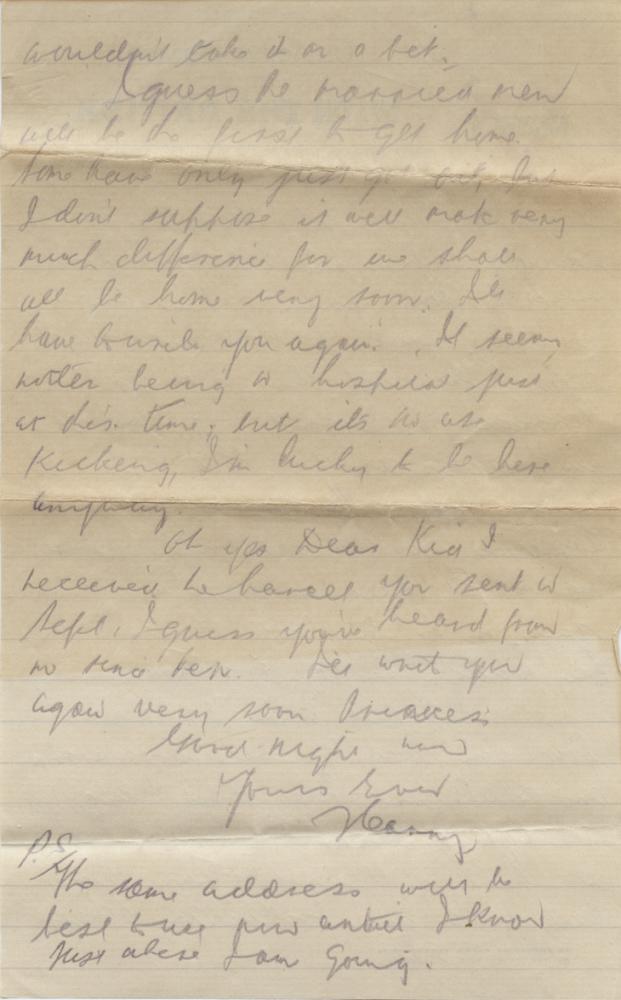 wouldn't take it on a bet.
I guess the married men
will be the first to get home.
Some have only just got out, but
I don't suppose it will make very
much difference for we shall
all be home very soon. I'll
have to write you again. It seems
rotten being in hospital just
at this time, but its no use
Kicking, I'm lucky to be here
anyway.
Oh yes Dear Kid I
received the parcel you sent in
Sept, I guess you've heard from
me since then. I'll write you
again very soon Princess
Good night now
Yours Ever
Harry
P.S.
The same address will be
best to use now until I know
just where I am going.